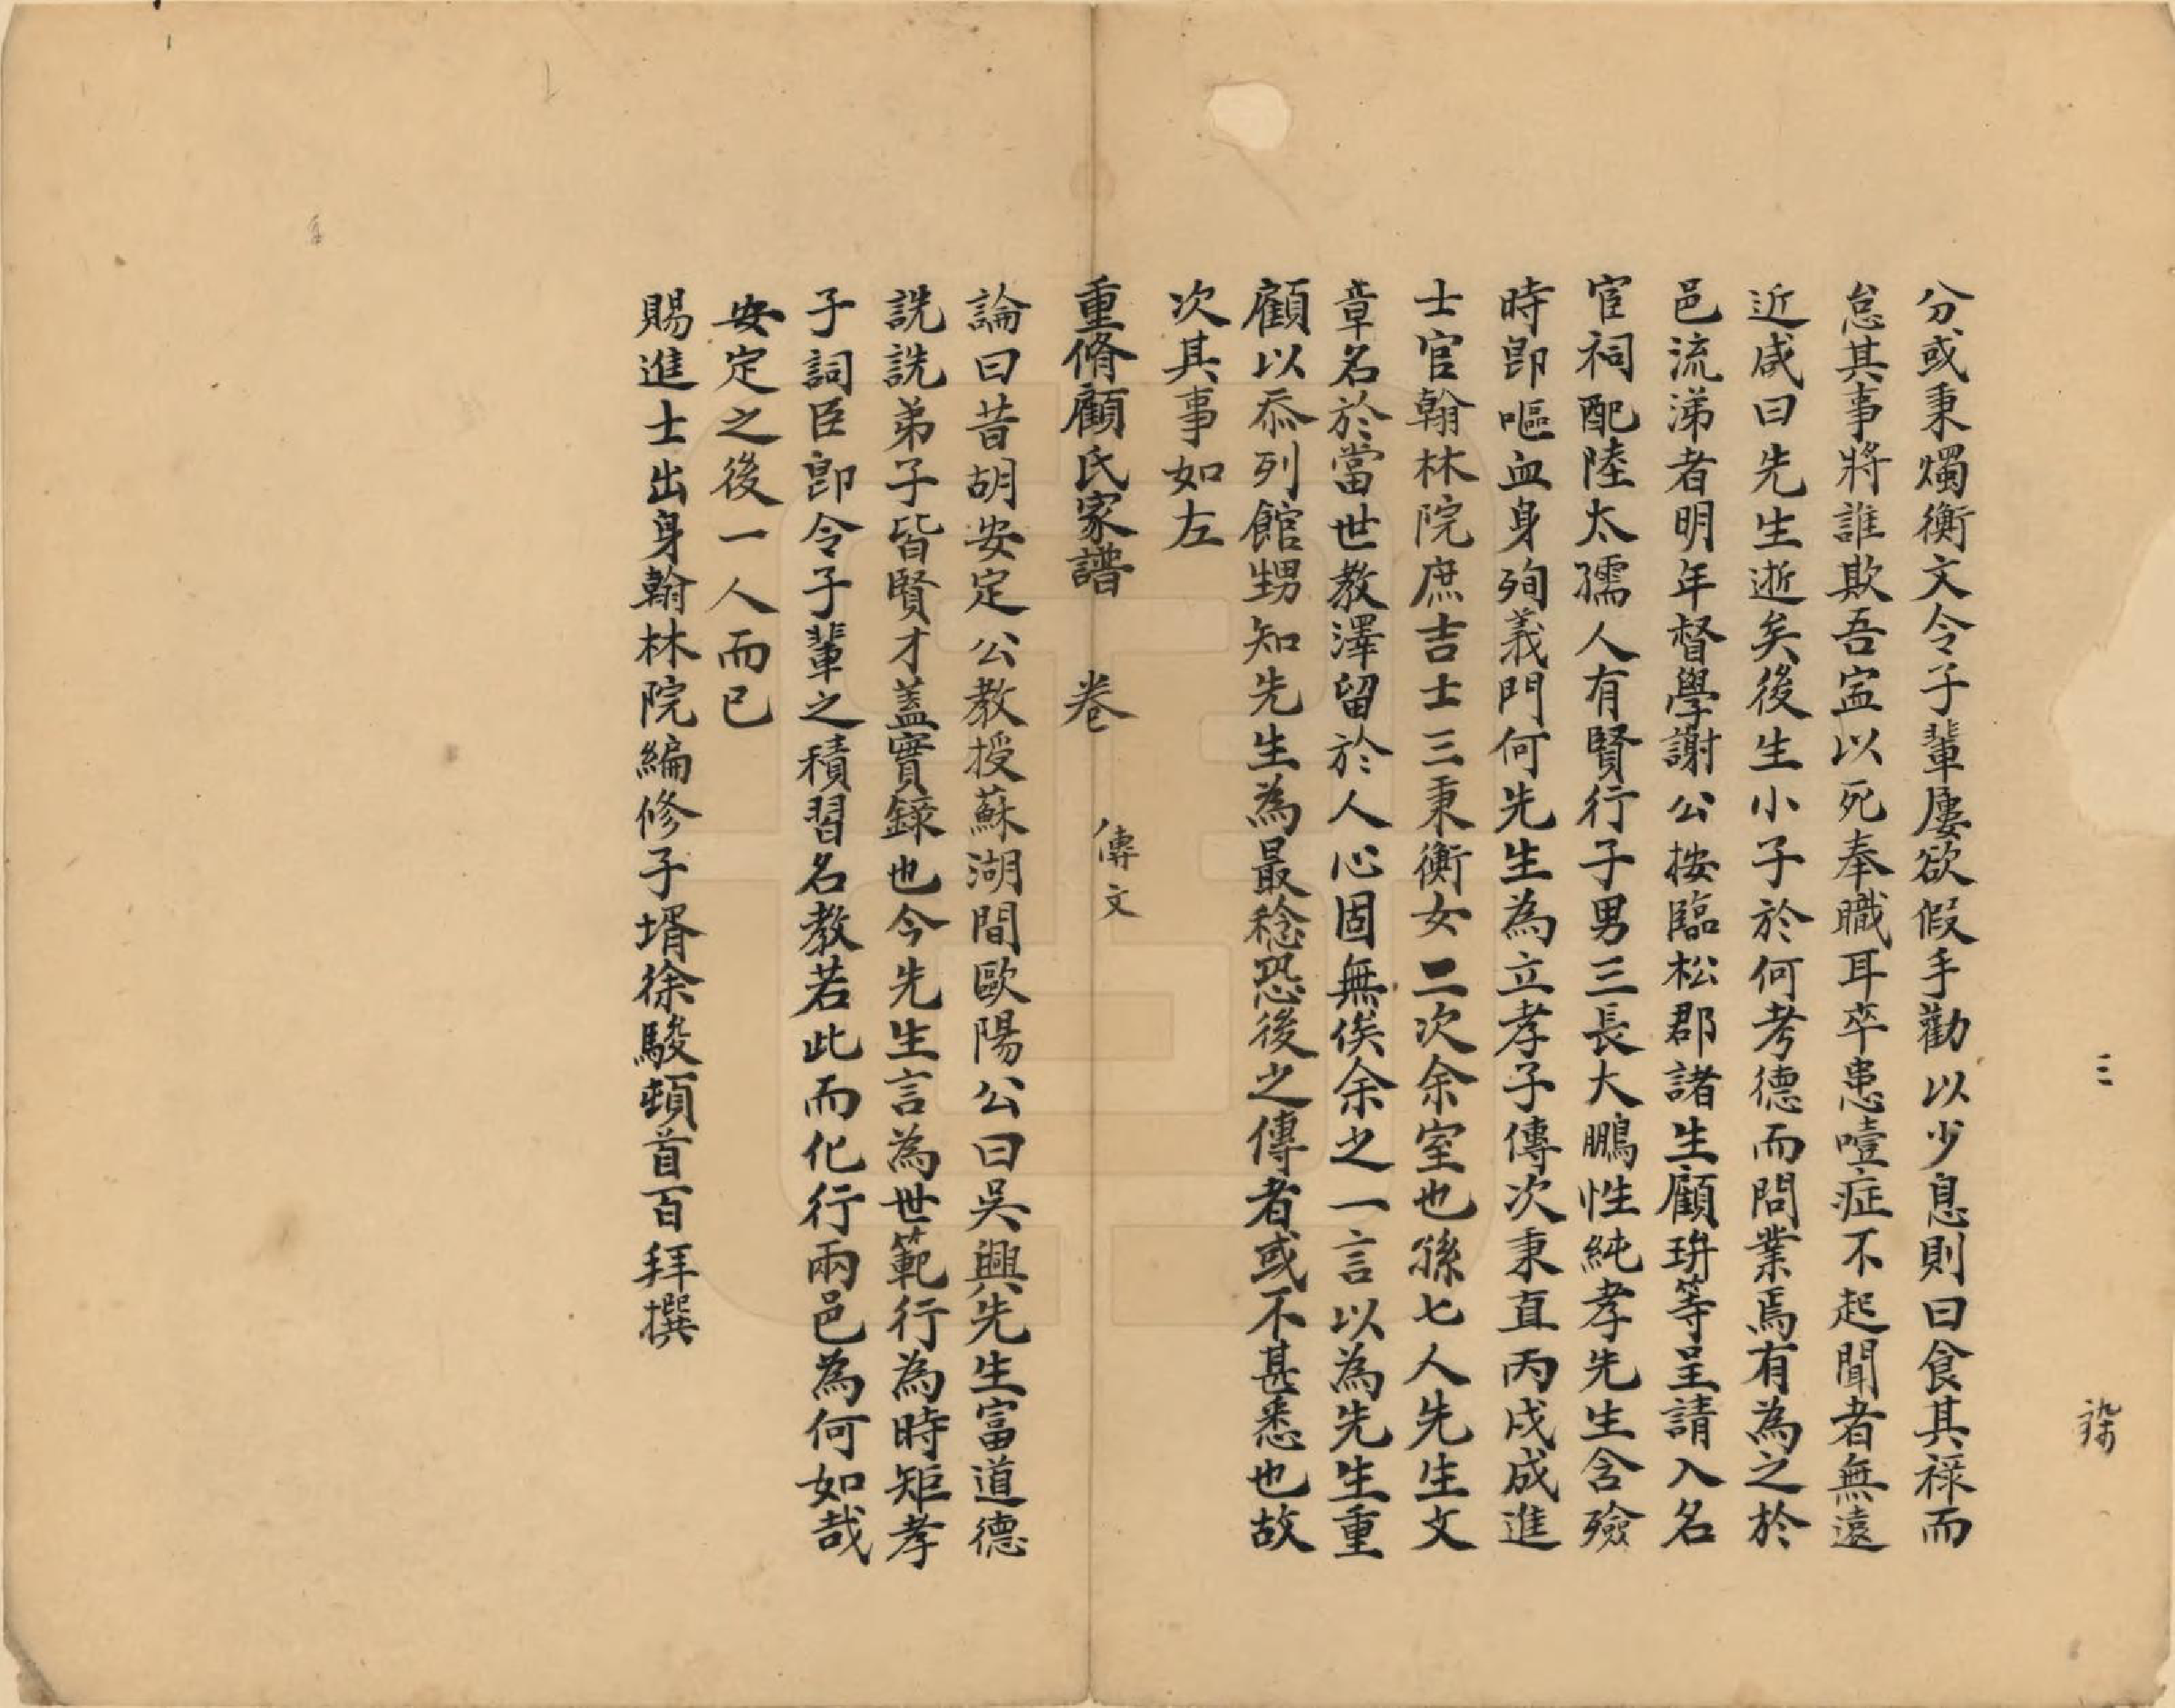 三
分或秉燭衡文令子輩屢欲假手勸以少息則曰食其祿而
怠其事將誰欺吾寍以死奉職耳卒患噎症不起聞者無遠
近咸曰先生逝矣後生小子於何考德而問業焉有為之於
邑流涕者明年督學謝公按臨松郡諸生顧珃等呈請入名
宦祠配陸太孺人有賢行子男三長大鵬性純孝先生含殮
時卽嘔血身殉義門何先生為立孝子傳次秉直丙戌成進
士官翰林院庶吉士三秉衡女二次余室也孫七人先生文
章名於當世教澤留於人心固無俟余之一言以為先生重
顧以忝列館甥知先生為最稔恐後之傳者或不甚悉也故
次其事如左
重脩顧氏家譜　卷　傳文
論曰昔胡安定公教授蘇湖間歐陽公曰吳興先生富道德
詵詵弟子皆賢才蓋實錄也今先生言為世範行為時矩孝
子詞臣卽令子輩之積習名教若此而化行兩邑為何如哉
安定之後一人而已
賜進士出身翰林院編修子壻徐駿頓首百拜撰